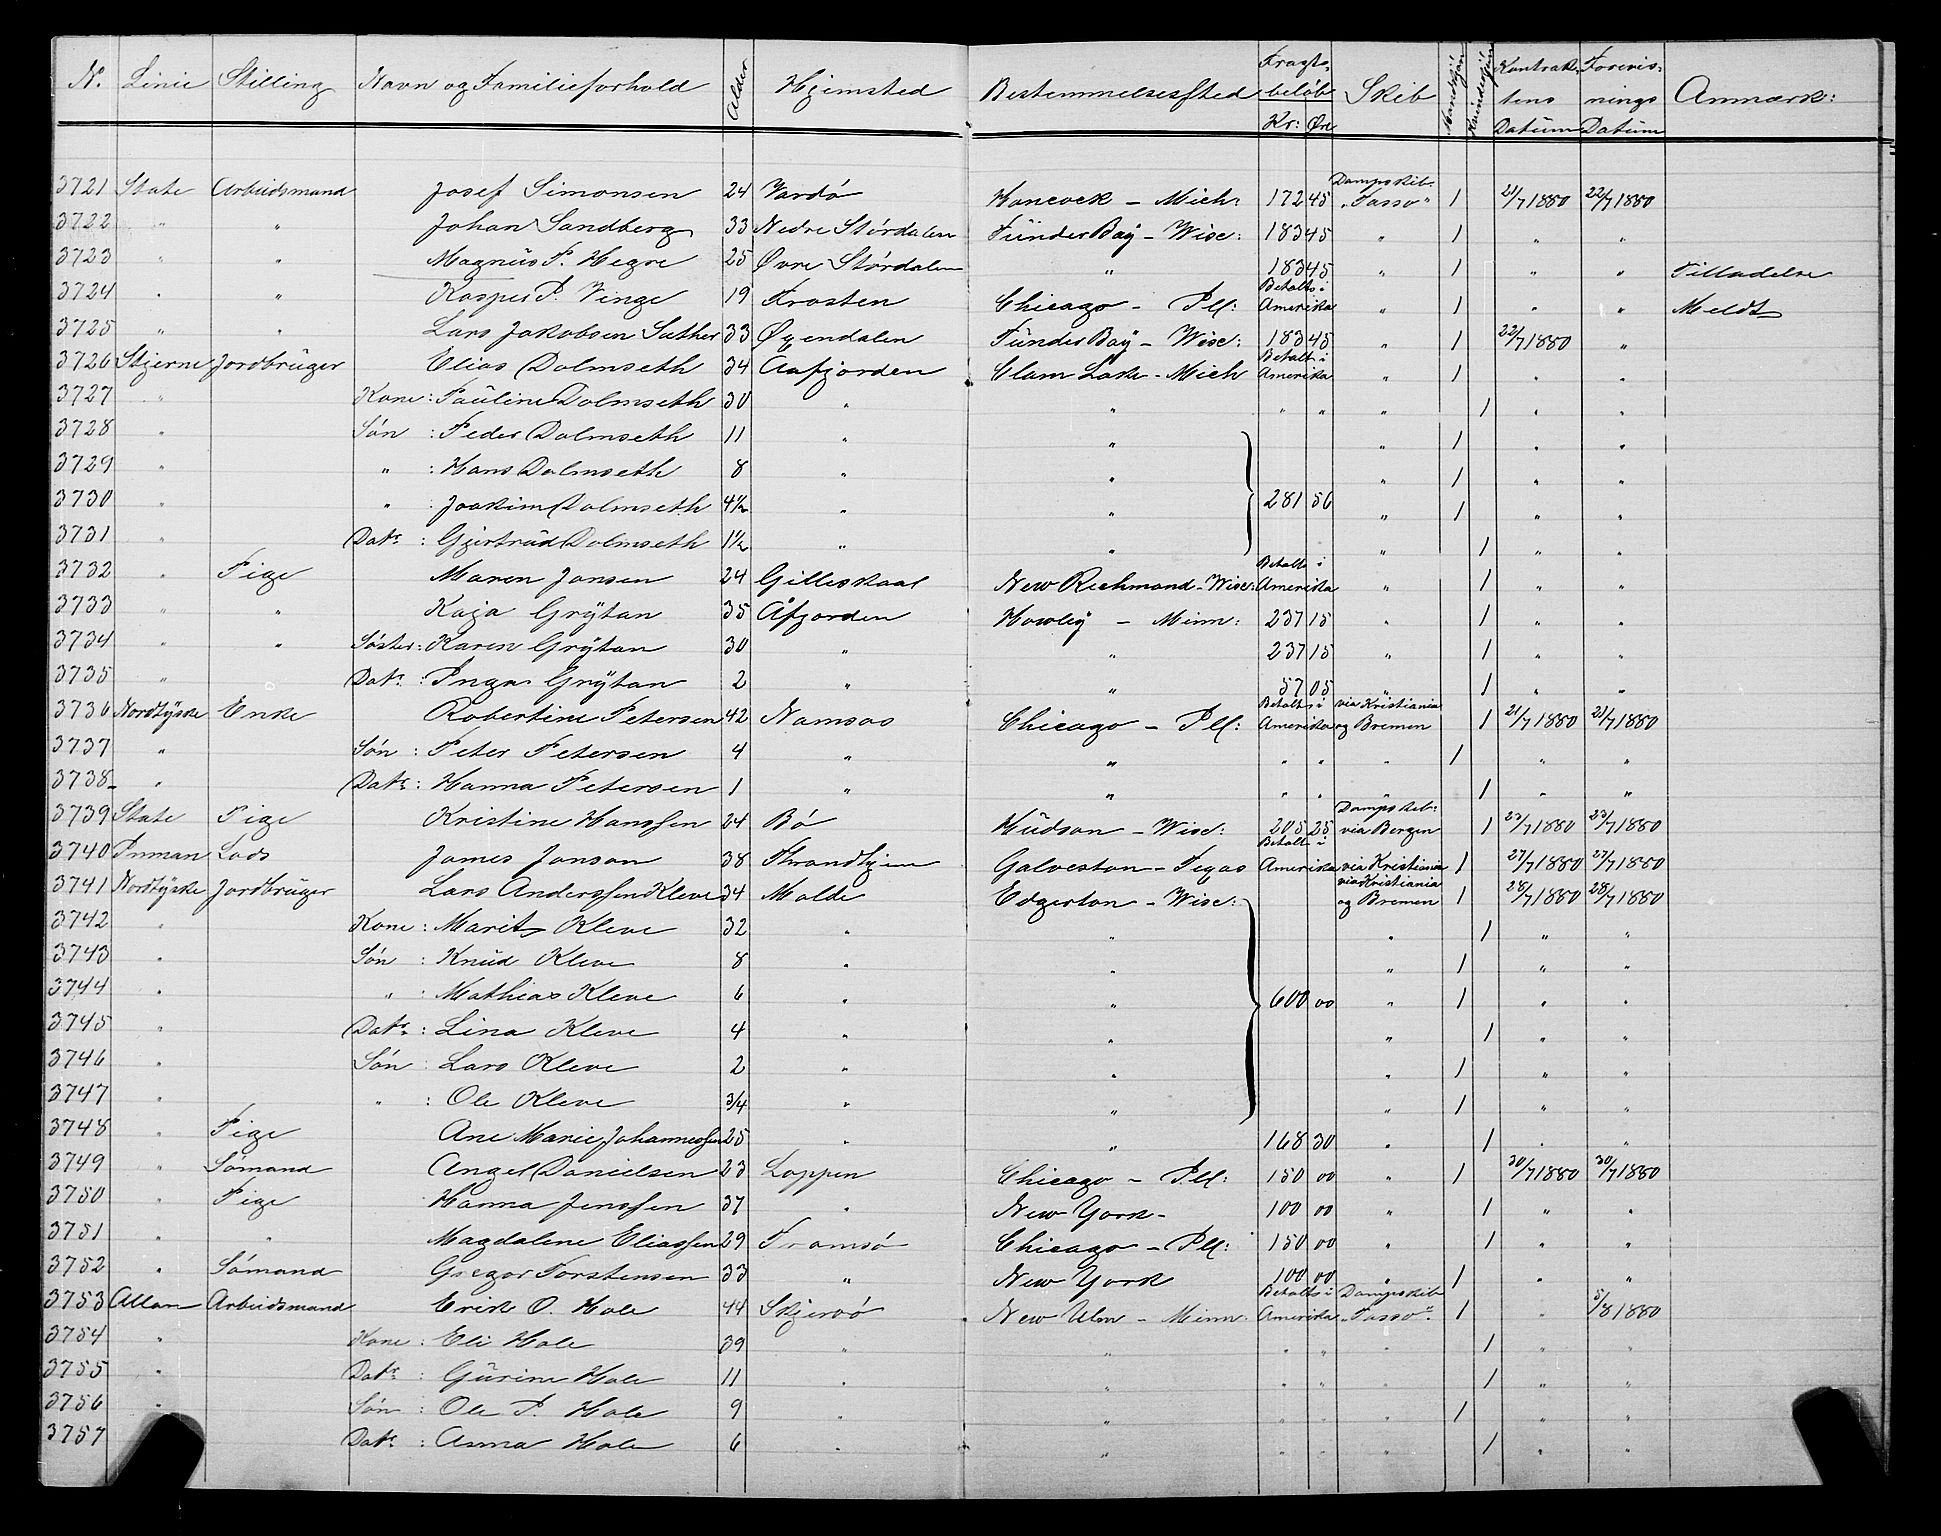 N. Linie Stilling Navn og Familieforhold Alder Hjemsted Bestemmelsessted Fragtbeløb Kr: Øre Skib Mandkjøn Kvindekjøn Kontraktens Datum Forevisnings Datum Anmærk:
3721 State Arbeidsmand Josef Simonsen 24 Vardö Hancock - Mich: 172 45 Dampskib. "Tasso" 1 21/7 1880 22/7 1880
3722 " " Johan Sandberg 33 Nedre Størdalen Tünder Bay - Wisc: 183 45 " 1 " "
3723 " " Magnus P. Hegre 25 Øvre Størdalen " 183 45 " 1 " " Tilladelse
3724 " " Kasper P. Vinge 19 Frosten Chicago - Ill: Betalt i Amerika " 1 " " Meldt
3725 " " Lars Jakobsen Sæther 33 Øyendalen Tünder Bay - Wisc: 183 45 " 1 22/7 1880 "
3726 Stjerne Jordbrüger Elias Dolmseth 34 Aafjorden Clam Lake - Mich Betalt i Amerika " 1 " "
3727 " Kone: Pauline Dolmseth 30 " " " " " 1 " "
3728 " Søn: Peder Dolmseth 11 " " " 1 " "
3729 " " : Hans Dolmseth 8 " " " 1 " "
3730 " " : Joakim Dolmseth 4½ " " 281 56 " 1 " "
3731 " Datr: Gjertrud Dolmseth 1½ " " " 1 " "
3732 " Pige Maren Jansen 24 Gilleskaal New Richmond - Wisc: Betalt i Amerika " 1 " "
3733 " " Kaja Grÿtan 35 Åfjorden Howley - Minn: 237 15 " 1 " "
3734 " " Søster: Karen Grÿtan 30 " " 237 15 " 1 " "
3735 " Datr: Inga Grÿtan 2 " " 57 05 " 1 " "
3736 Nordtÿske Enke Robertine Petersen 42 Namsos Chicago - Ill: Betalt i Amerika via Kristiania og Bremen 1 21/7 1880 21/7 1880
3737 " Søn: Peter Petersen 4 " " " " " 1 " "
3738 " Datr: Hanna Petersen 1 " " " " " 1 " "
3739 State Pige Kristine Hanssen 24 Bö Hüdson - Wisc: 205 25 Dampskib: via Bergen 1 23/7 1880 23/7 1880
3740 Inman Lods James Janson 38 Throndhjem Galveston - Texas Betalt i Amerika via Kristiania 1 27/7 1880 27/7 1880
3741 Nordtÿske Jordbrüger Lars Anderssen Kleve 34 Molde Edgerton - Wisc: via Kristiania og Bremen 1 28/7 1880 28/7 1880
3742 " Kone: Marit Kleve 32 " " " 1 " "
3743 " Søn: Knüd Kleve 8 " " " 1 " "
3744 " " : Mathias Kleve 6 " " 600 00 " 1 " "
3745 " Datr: Lina Kleve 4 " " " 1 " "
3746 " Søn: Lars Kleve 2 " " " 1 " "
3747 " " : Ole Kleve 3/4 " " " 1 " "
3748 " Pige Ane Marie Johannessen 25 " " 168 30 " 1 " "
3749 " Sömand Angel Danielsen 23 Loppen Chicago - Ill: 150 00 " 1 30/7 1880 30/7 1880
3750 " Pige Hanna Jenssen 37 " New York - 100 00 " 1 " "
3751 " " Magdalene Eliassen 29 Tromsö Chicago - Ill: 150 00 " 1 " "
3752 " Sömand Gregor Torstensen 33 " New York 100 00 " 1 " "
3753 Allan Arbeidsmand Erik O. Hole 44 Skjervö New Ulm - Minn. Betalt i Amerika Dampskib "Tasso". 1 " 5/8 1880
3754 " Kone: Eli Hole 39 " " " " " 1 " "
3755 " Datr: Gürine Hole 11 " " " " " 1 " "
3756 " Søn: Ole P. Hole 9 " " " " " 1 " "
3757 Datr: Anna Hole 6 " " " " " 1 " "